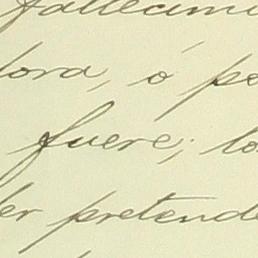 fallecimi
dora, ó pe
fuere; lo
er pretende